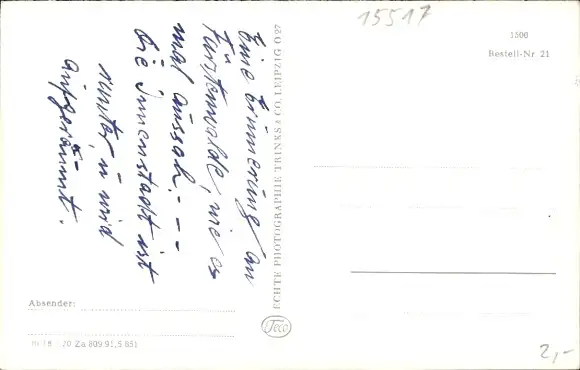 15517
1500
Bestell-Nr. 21
Eine Erinnerung an
Fürstenwalde, wie es
mal aussah. - - -
Die Innenstadt ist
runter, u. wird
aufgeräumt.
ECHTE PHOTOGRAPHIE TRINKS & CO. LEIPZIG O 27
Teco
Absender:
Za 809 91,5 851
2,-